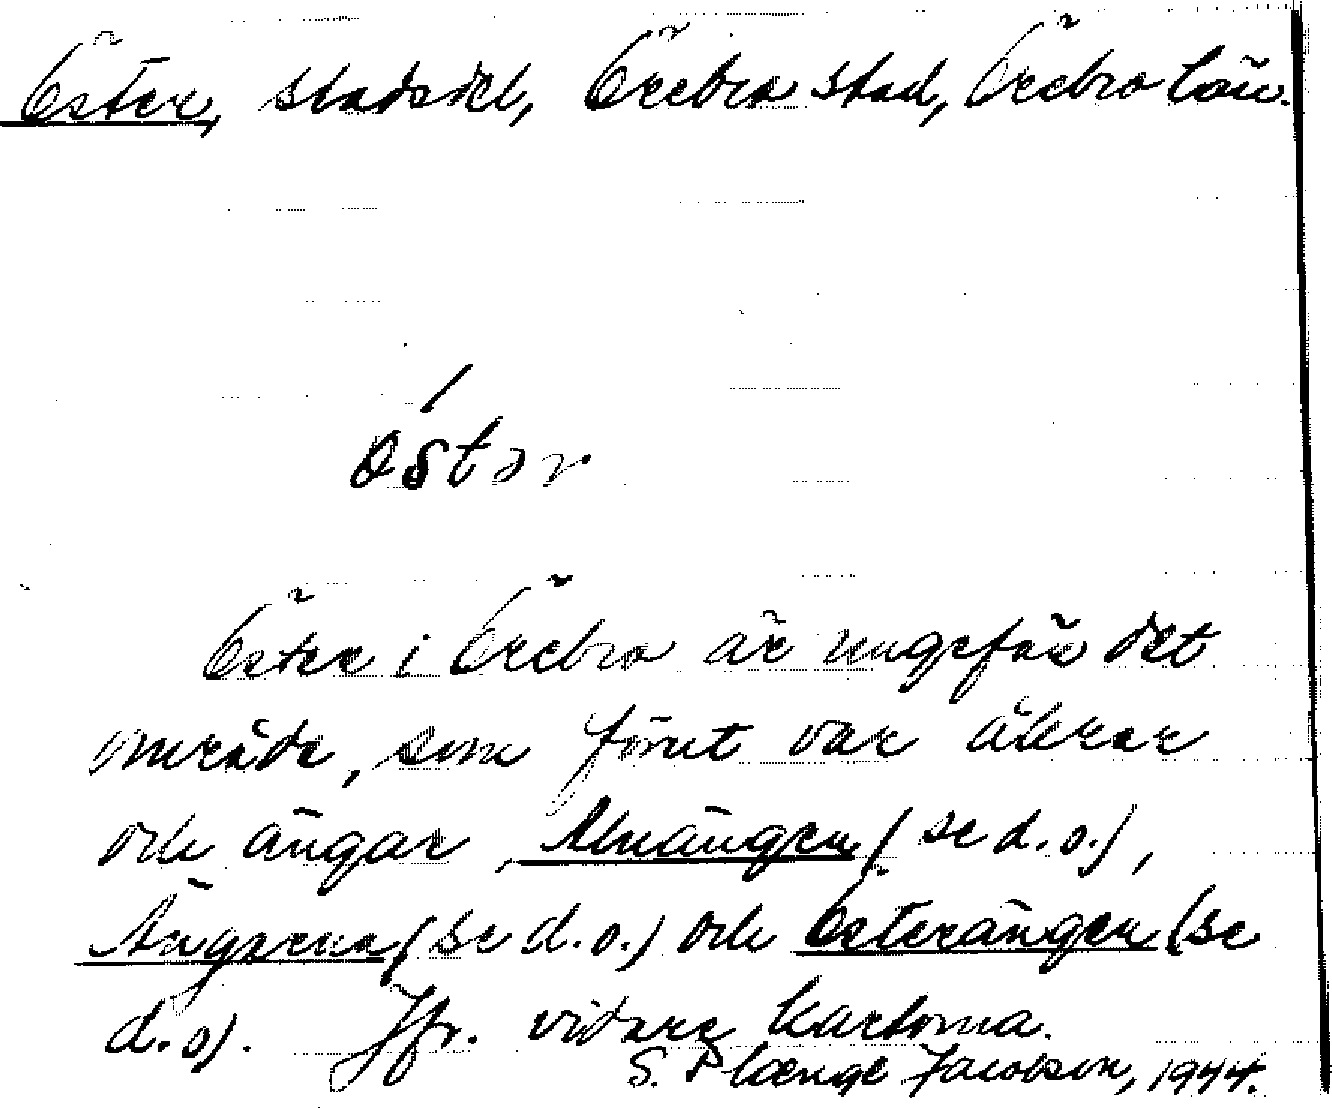 Öster, stadsdel, Örebro stad, Örebro län.
östər
Öster i Örebro är ungefär det
område, som förut var åkrar
och ängar, Alnängen (se d.o.),
(se d.o.) och Österängen (se
d.o). Jfr. vidare kartorna.
S. Jacobson, 1944.